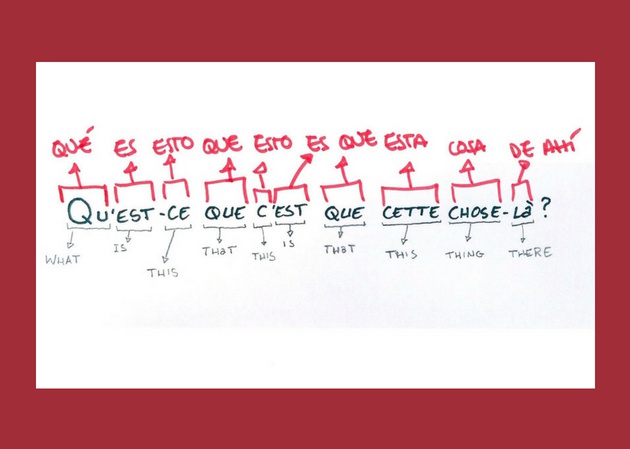 QUÉ ES ESTO QUE ESTO ES QUE ESTA COSA DE AHÍ
QU'EST-CE QUE C'EST QUE CETTE CHOSE-Là ?
WHAT IS THIS THAT THIS IS THAT THIS THING THERE